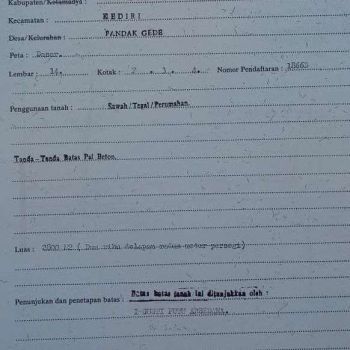 Kabupaten/Kotamadya :
Kecamatan : KEDIRI
Desa/Kelurahan : PANDAK GEDE
Peta : Dasar.
Lembar : 14. Kotak : 2 . 3 . Nomor Pendaftaran : 18663
Penggunaan tanah : Sawah/Tegal/Perumahan.
Tanda-Tanda Batas Pal Beton.
Luas : 2800 M2 ( Dua ribu delapan ratus meter persegi)
Penunjukan dan penetapan batas : Batas batas tanah ini ditunjukkan oleh :
I GUSTI PUTU